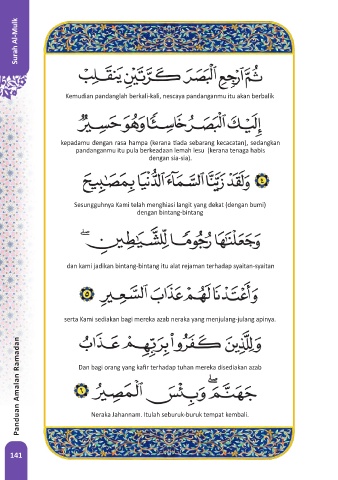 Surah Al-Mulk
ثُمَّ ٱرْجِعِ ٱلْبَصَرَ كَرَّتَيْنِ يَنقَلِبْ
Kemudian pandanglah berkali-kali, nescaya pandanganmu itu akan berbalik
إِلَيْكَ ٱلْبَصَرُ خَاسِئًا وَهُوَ حَسِيرٌ
kepadamu dengan rasa hampa (kerana tiada sebarang kecacatan), sedangkan
pandanganmu itu pula berkeadaan lemah lesu (kerana tenaga habis
dengan sia-sia).
٤ وَلَقَدْ زَيَّنَّا ٱلسَّمَآءَ ٱلدُّنْيَا بِمَصَٰبِيحَ
Sesungguhnya Kami telah menghiasi langit yang dekat (dengan bumi)
dengan bintang-bintang
وَجَعَلْنَٰهَا رُجُومًا لِّلشَّيَٰطِينِ ۖ
dan kami jadikan bintang-bintang itu alat rejaman terhadap syaitan-syaitan
وَأَعْتَدْنَا لَهُمْ عَذَابَ ٱلسَّعِيرِ ٥
serta Kami sediakan bagi mereka azab neraka yang menjulang-julang apinya.
وَلِلَّذِينَ كَفَرُوا۟ بِرَبِّهِمْ عَذَابُ
Dan bagi orang yang kafir terhadap tuhan mereka disediakan azab
جَهَنَّمَ ۖ وَبِئْسَ ٱلْمَصِيرُ ٦
Neraka Jahannam. Itulah seburuk-buruk tempat kembali.
Panduan Amalan Ramadan
141